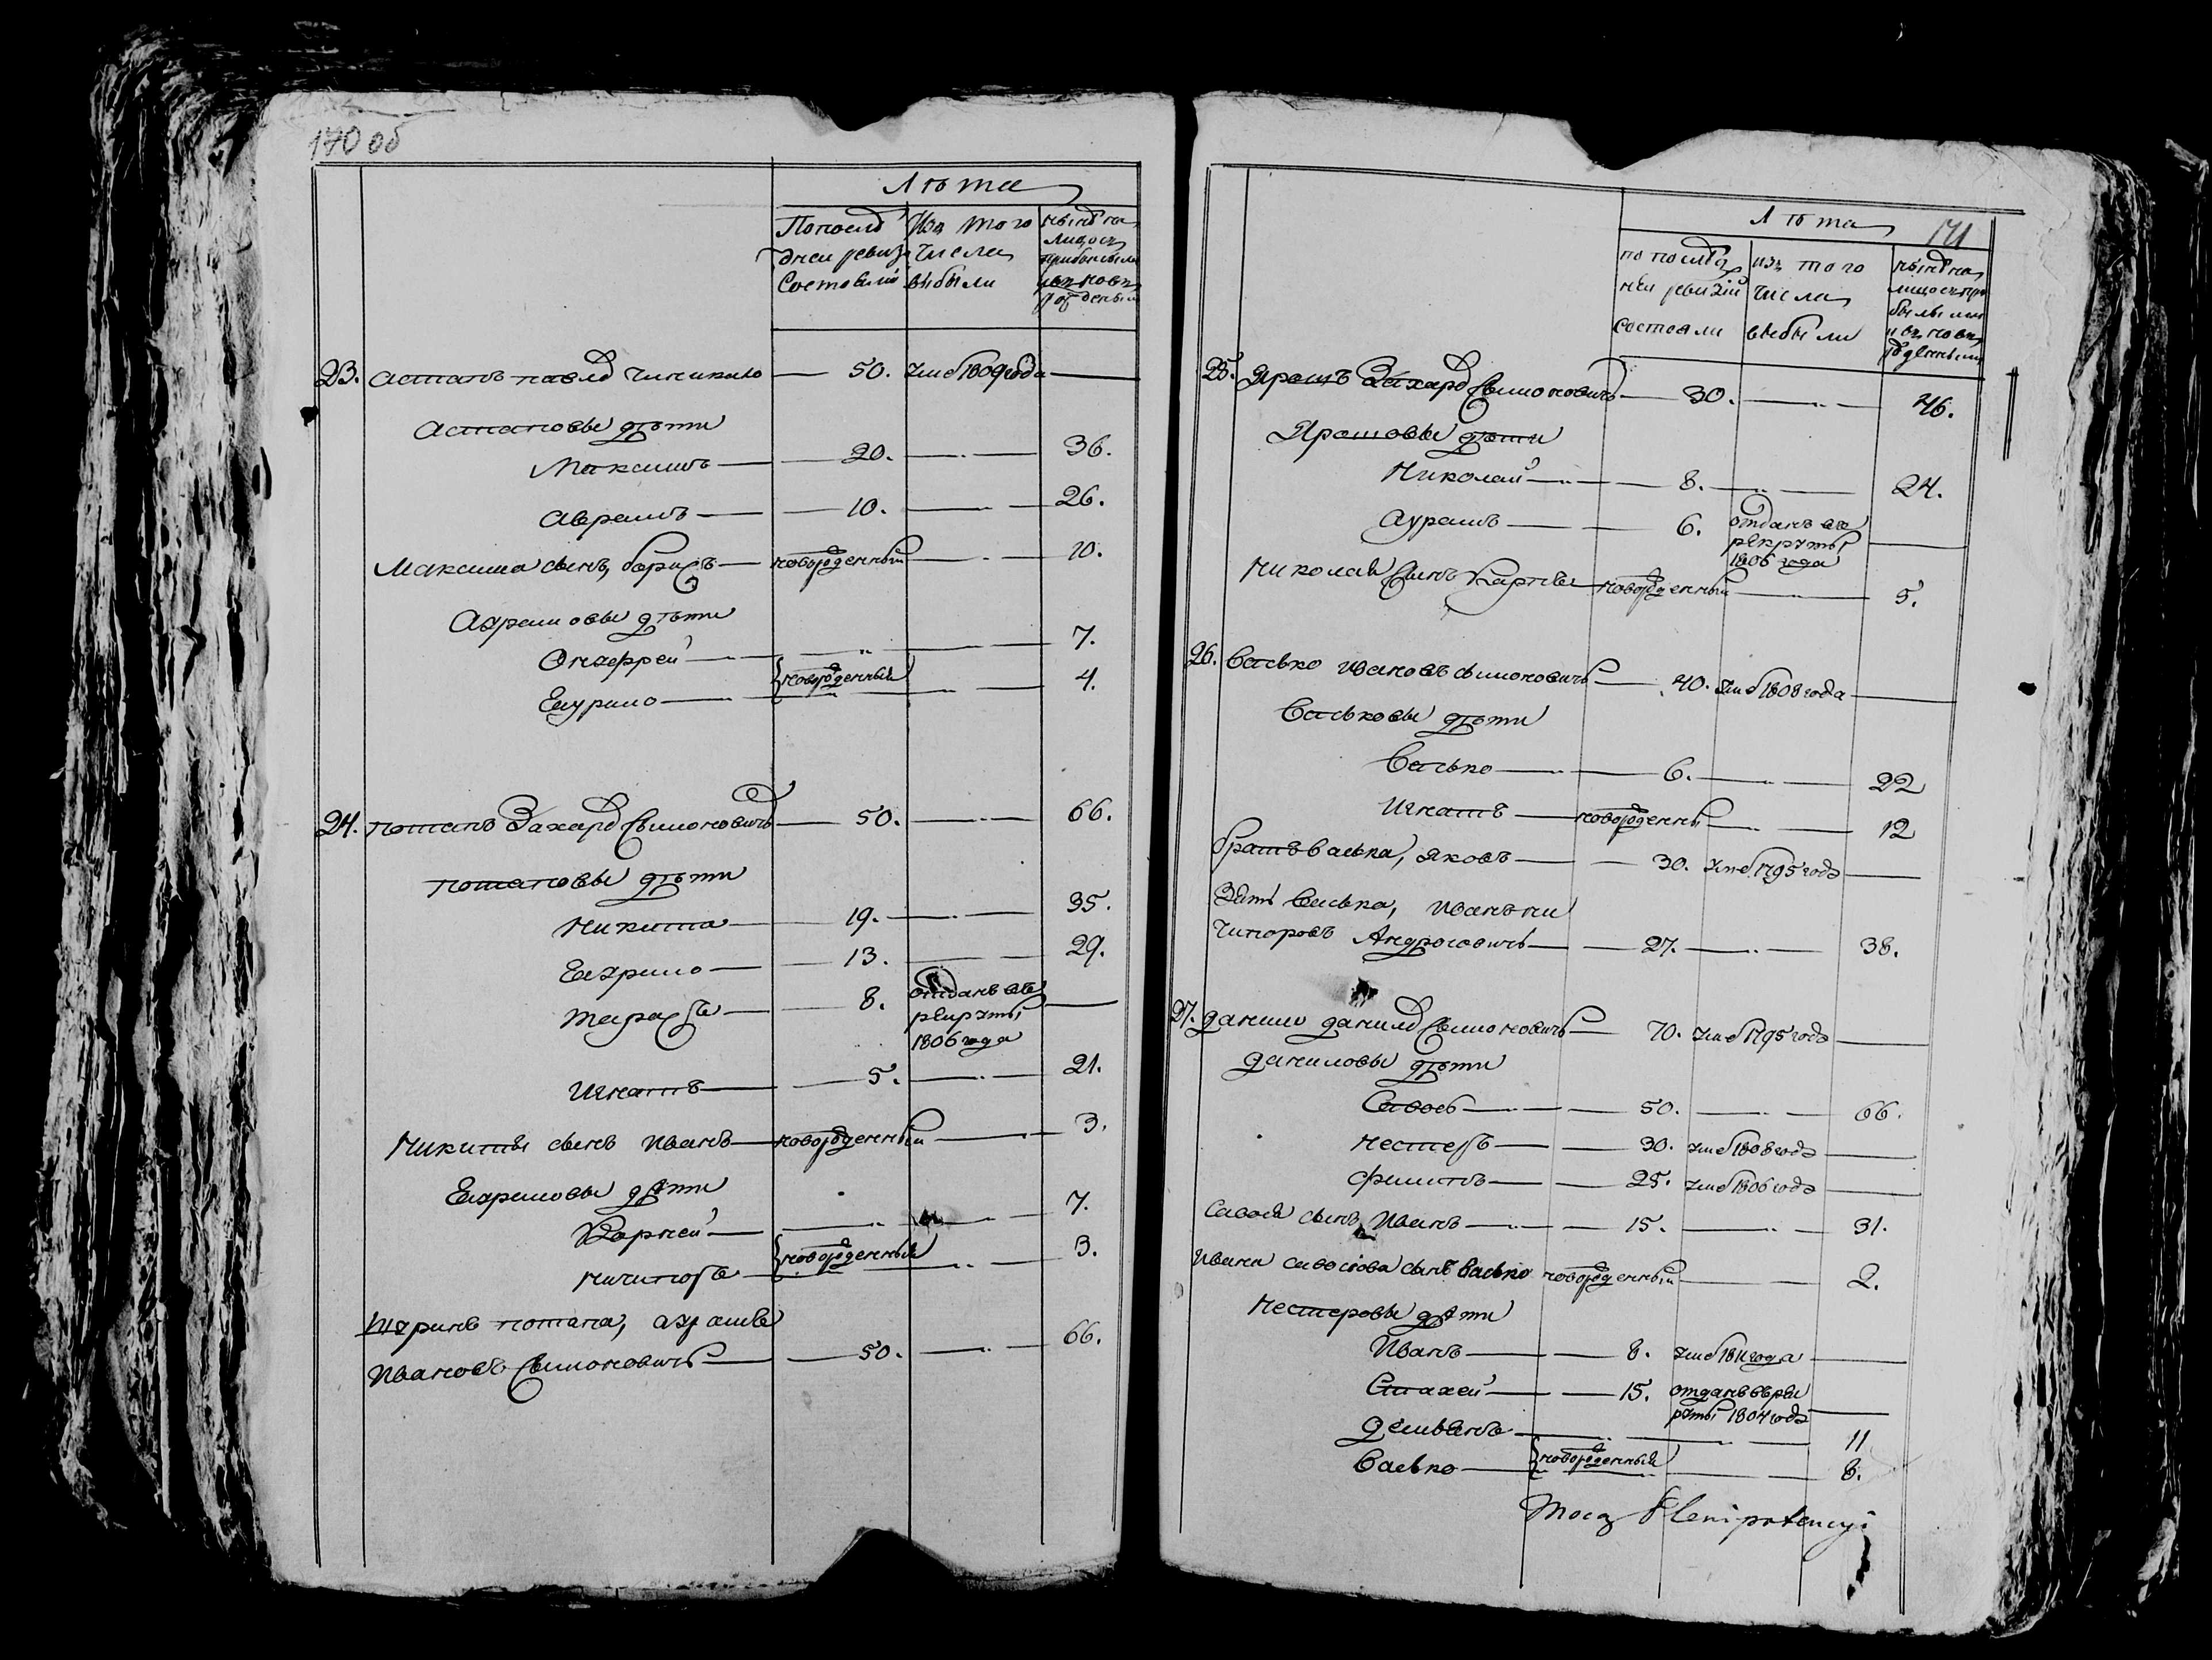 170 об
Лѣта
Попослѣ Изъ того нынѣ на
дней ревиз числа лицо съ
Состояли выбыли прибылыми
и съ новорожденными
23. Астапъ павлов Чиникайло — 50. умеръ 1809 года —
Астаповы дѣти
Максимъ — 20. — 36.
Аврамъ — 10. — 26.
Максима сынъ, борисъ — новорожденный — 10.
Аврамовы дѣти
Онуфрей — 7.
новорожденныя
Гаурило — 4.
24. потапъ Захаров Симоновичь — 50. — 66.
потаповы дѣти
Никита — 19. — 35.
Гаврило — 13. — 29.
Тарасъ — 8. отданъ въ —
рекруты
1806 года
Игнатъ — 5. — 21.
Никиты сынъ Иванъ — новорожденный — 3.
Гавриловы дѣти
Карней — 7.
новорожденныя
Ничипоръ — 3.
Шуринъ потапа, аврамъ
Ивановъ Симоновичь — 50. — 66.
171
Лѣта
по послѣд изъ того нынѣ на
ней ревизіи числа лицо съ при
состояли выбыли былыми
и съ новорожденными
25. Ярошъ Захаров Симоновичь — 30. — 46.
Ярошовы дѣти
Николай — 8. — 24.
Аурамъ — 6. отданъ въ —
рекруты
1806 года
Николая Сынъ Карней — новорожденный — 5.
26. Васько ивановъ симоновичь — 40. умеръ 1808 года —
Васьковы дѣти
Васько — 6. — 22
Игнатъ — новорожденны — 12
братъ васька, яковъ — 30. умеръ 1795 года —
Зать Васька, иванъ ни
чипоровъ Андросовичь — 27. — 38.
27. данило данилов Симоновичь — 70. умеръ 1795 года —
даниловы дѣти
Савось — 50. — 66.
Нестеръ — 30. умеръ 1808 года —
филипъ — 25. умеръ 1806 года —
Савося сынъ Иванъ — 15. — 31.
Ивана савосіова сынъ Васько новорожденный — 2.
Нестеровы дѣти
Иванъ — 8. умеръ 1811 года —
Стахей — 15. отданъ въ рек
руты 1804 года —
демьянъ — 11
новорожденныя
Васько — 8.
Mocą Plenipotencyi